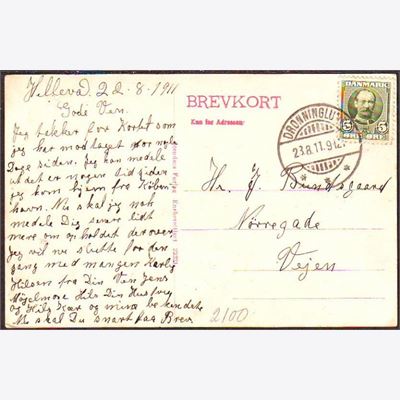 Hilleva d. 22-8-1911
Gode Ven.
Jeg takker for Kortet som
jeg har modtaget for nylig
Dage siden. Jeg kan meddele
at det er nogen tid siden
jeg kom hjem fra Køben
havn. Nu skal jeg nok
medele Dig senere lidt
mere om opholdet derover
Jeg vil nu slutte for den
gang med mangen Kærlig
Hilsen fra Din Ven Jens
Mijelmose Hils Din Hustru
og Hils Kær og mine bekendte
Nu skal Du snart faa Brev
BREVKORT
Kun for Adressen:
DRONNINGLU
23.8.11.9
DANMARK
5 ØRE 5
Hr. J. Bundgaard
Nørregade
Vejen
2100